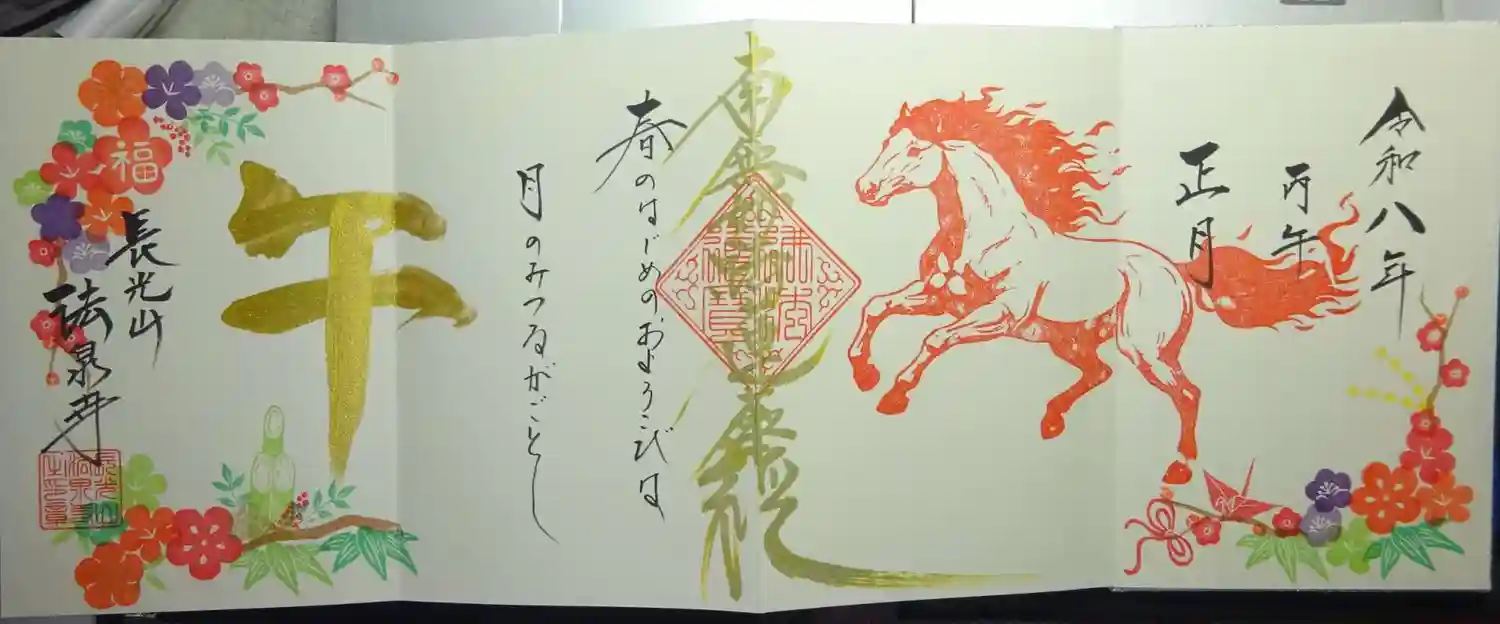 令和八年
丙午
正月
南無妙法蓮華経
春のはじめのおよろこびは
月のみつるがごとし
午
福
長光山
法泉寺